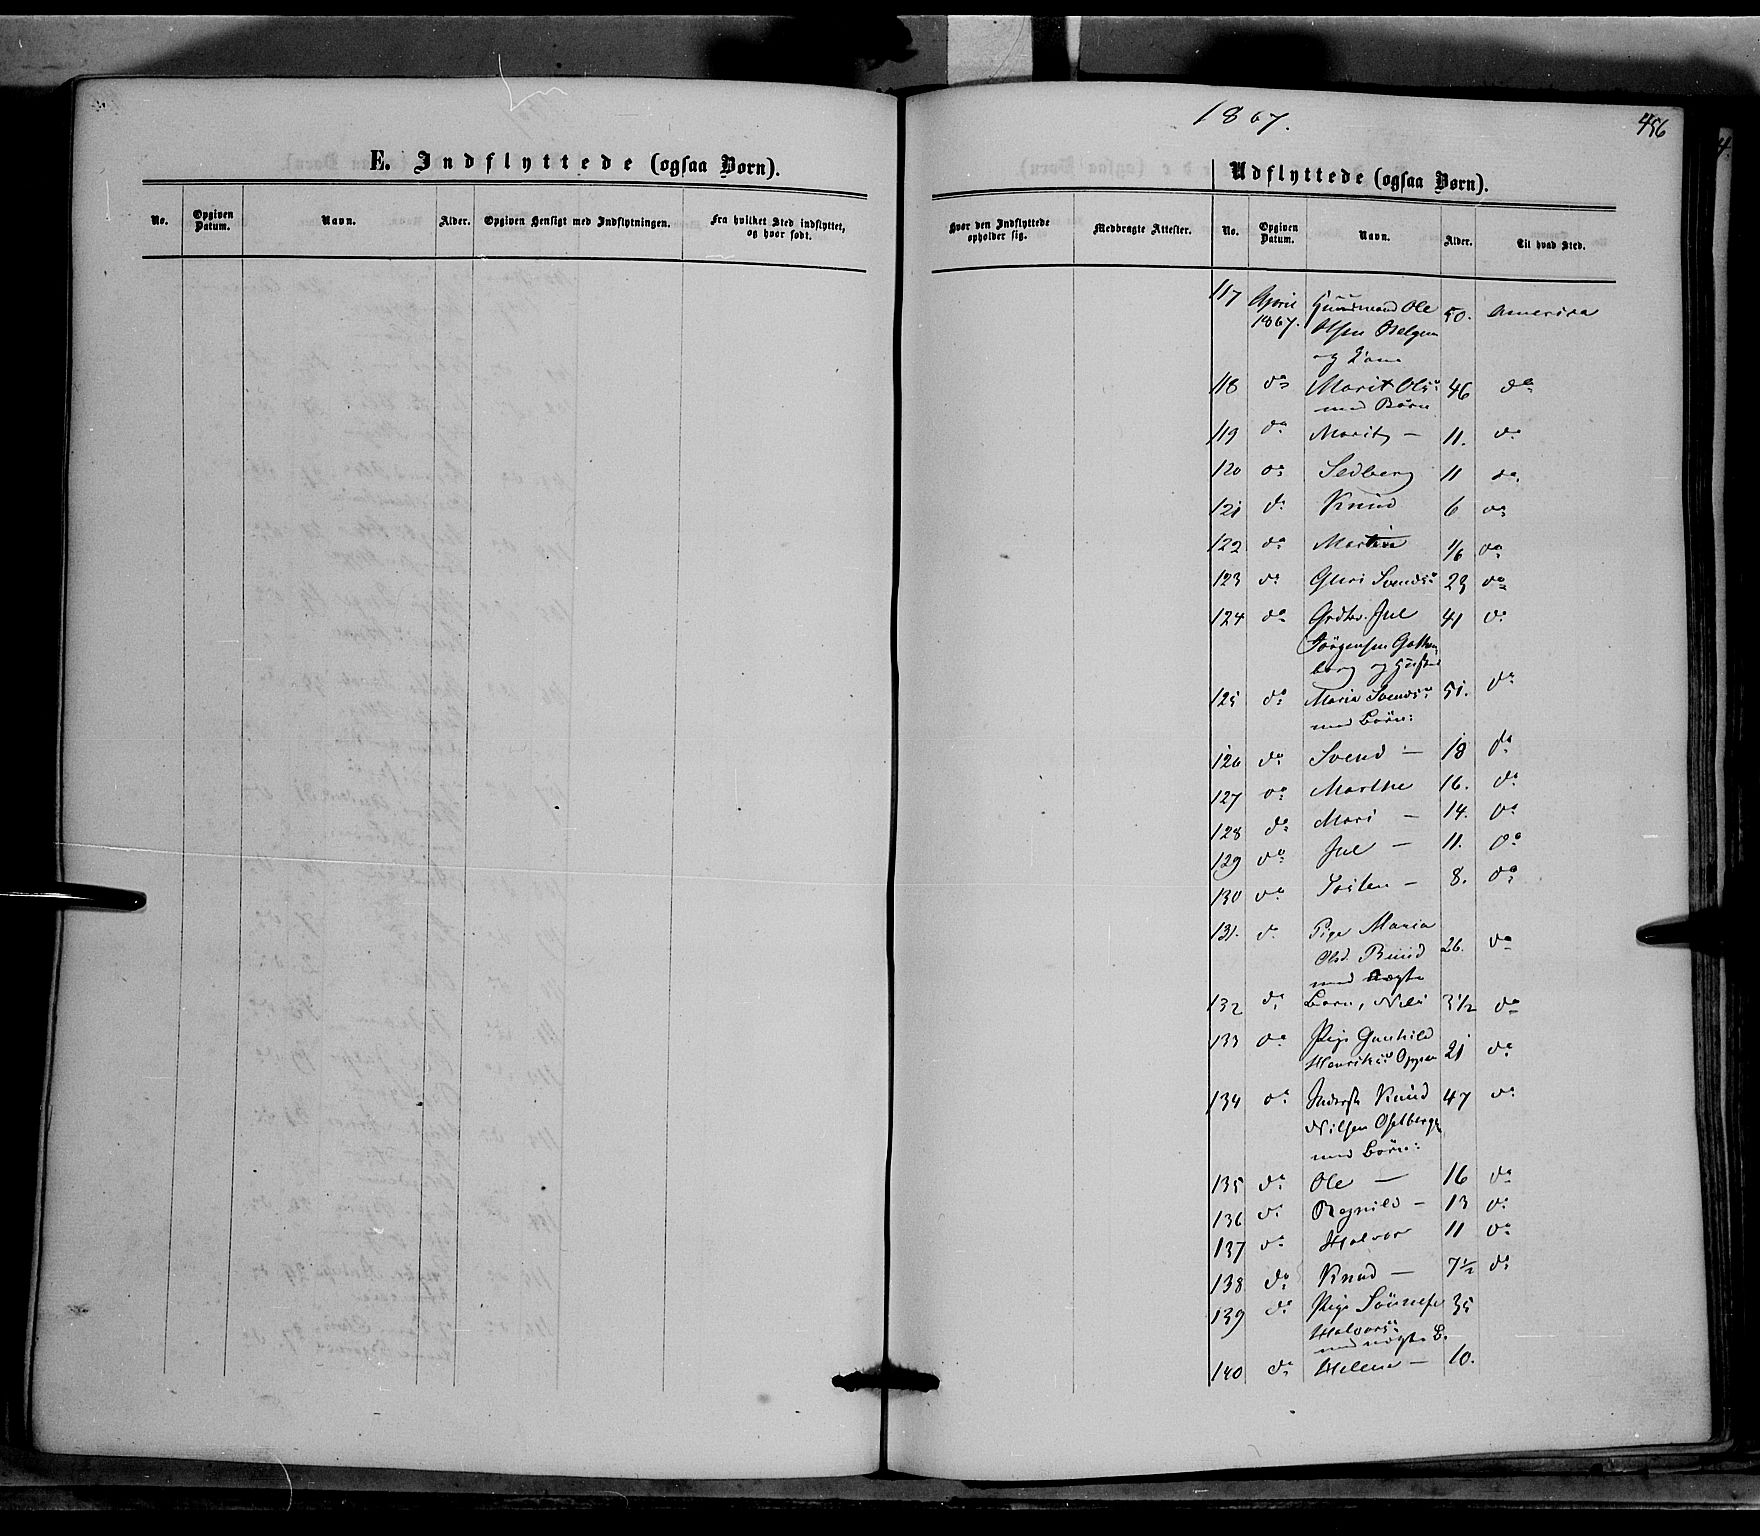 1867.
456
E. Indflyttede (ogsaa Børn).
Udflyttede (ogsaa Børn).
No. Opgiven Datum. Navn. Alder. Opgiven Hensigt med Indflytningen. Fra hvilket Sted indflyttet, og hvor født.
Hvor den Indflyttede opholder sig. Medbragte Attester. No. Opgiven Datum. Navn. Alder. Til hvad Sted.
117 April 1867. Huusmand Ole 50. America
Olsen
og Kone
118 do Marit Olsd 46 do
med Børn
119 do Marit – 11. do
120 do Sedberg 11 do
121 do Knud 6 do
122 do Martin 1/6 do
123 do Guri Svendsd 23 do
124 do Grdbr. Jul 41 do
Jørgensen
berg og Hustr
125 do Maria Svendsd 51. do
med Børn:
126 do Svend – 18 do
127 do Marthe 16. do
128 do Mari – 14. do
129 do Jul – 11. do
130 do Tosten – 8. do
131. do Pige Maria 26. do
Olsd. Ruud
med uægte
132 do Barn, Nils 3 1/2 do
133 do Pige Gunhild 21 do
Henriksd Oppen
134 do Inderst Knud 47 do
Nilsen
med Børn:
135 do Ole – 16 do
136 do Ragnild – 13 do
137 do Halvor 11 do
138 do Knud – 7 1/2 do
139 do Pige 35
Halvorsd
med uægte B.
140 do Helene – 10.